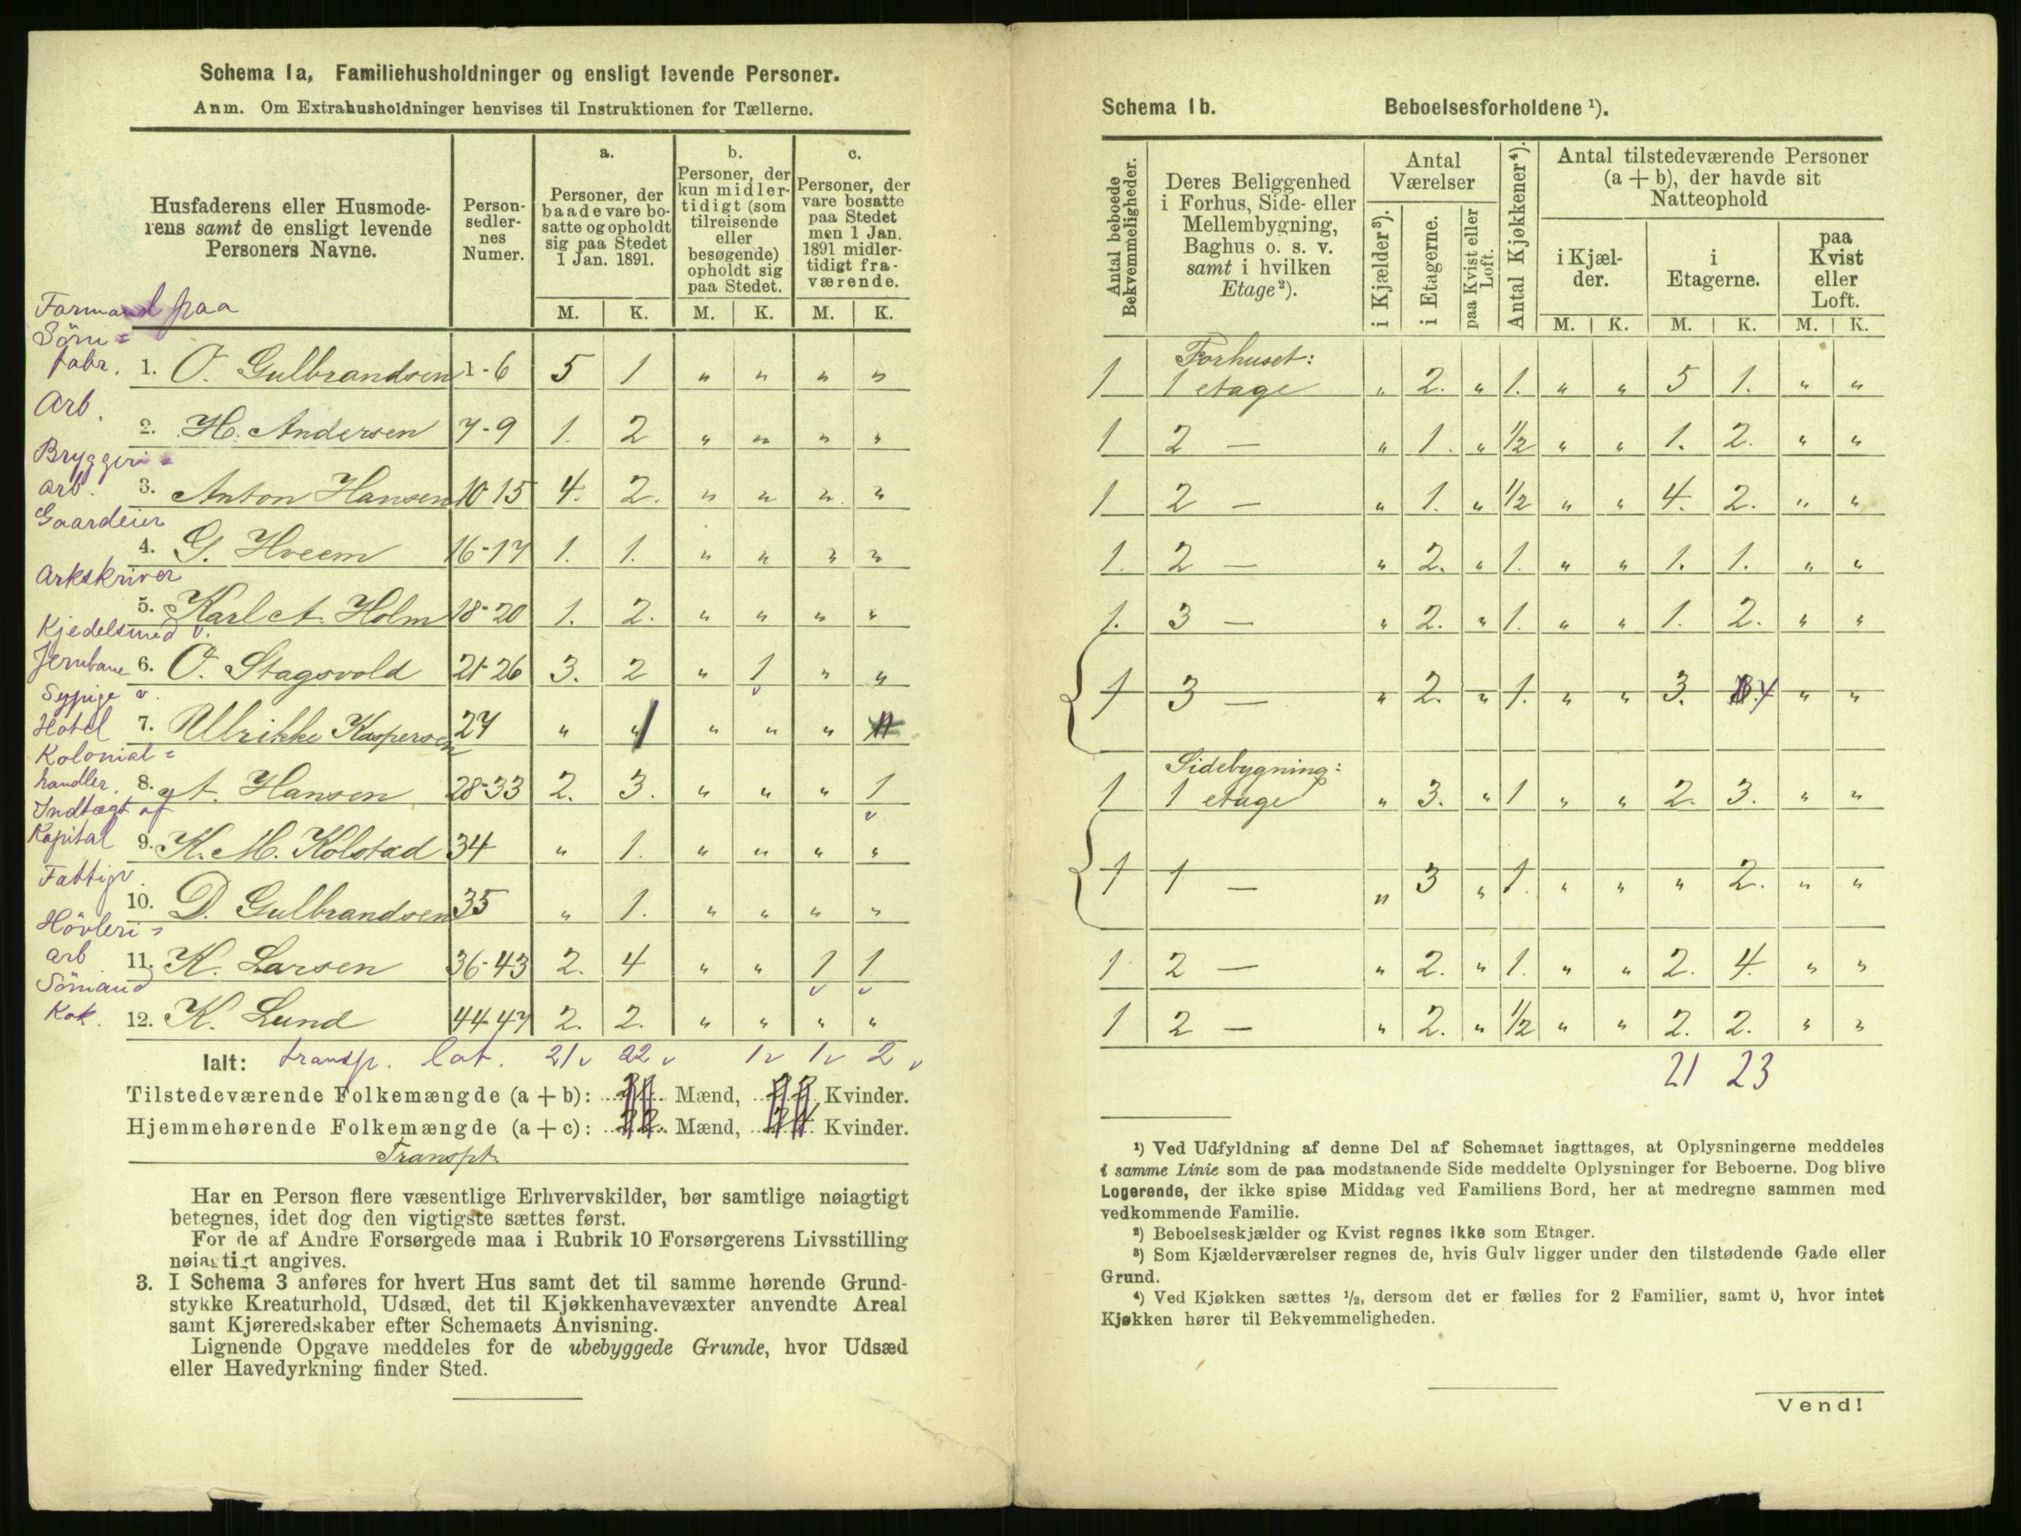 Schema 1a, Familiehusholdninger og ensligt levende Personer.
Anm. Om Extrahusholdninger henvises til Instruktionen for Tællerne.
Husfaderens eller Husmode-
rens samt de ensligt levende
Personers Navne.
Person-
sedler-
nes
Numer.
a.
Personer, der
baade vare bo-
satte og opholdt
sig paa Stedet
1 Jan. 1891.
b.
Personer, der
kun midler-
tidigt (som
tilreisende
eller
besøgende)
opholdt sig
paa Stedet.
c.
Personer, der
vare bosatte
paa Stedet
men 1 Jan.
1891 midler-
tidigt fra-
værende.
M. K. M. K. M. K.
Formand paa
Söm=
fabr. 1. O. Gulbrandsen 1-6 5 1 " " " "
Arb.
2. H. Andersen 7-9 1. 2 " " " "
Bryggeri=
arb. 3. Anton Hansen 10-15 4. 2. " " " "
Gaardeier
4. G. Hveem 16-17 1. 1. " " " "
Arkskriver
5. Karl A. Holm 18-20 1. 2. " " " "
Kjedelsmed v.
Jernbane 6. O. Stagsvold 21-26 3. 2 " 1 " "
Sypige v.
Hotel 7. Ulrikke Kaspersen 27 " 1 " " " "
Kolonial=
handler. 8. A. Hansen 28-33 2. 3. " " " 1
Indtægt af
Kapital 9. K. M. Kolstad 34 " 1. " " " "
Fattigv.
10. D. Gulbrandsen 35 " 1. " " " "
Hövleri=
arb 11. K. Larsen 36-43 2. 4 " " 1 1
Sömand
Kok. 12. K. Lund 44-47 2. 2. " " " "
Ialt: transp. Lat. 21 v 22 v 1 v 1 v 2 v
Tilstedeværende Folkemængde (a + b): Mænd, Kvinder.
Hjemmehørende Folkemængde (a + c): Mænd, Kvinder.
Transpt.
Har en Person flere væsentlige Erhvervskilder, bør samtlige nøiagtigt
betegnes, idet dog den vigtigste sættes først.
For de af Andre Forsørgede maa i Rubrik 10 Forsørgerens Livsstilling
nøiagtigt angives.
3. I Schema 3 anføres for hvert Hus samt det til samme hørende Grund-
stykke Kreaturhold, Udsæd, det til Kjøkkenhavevæxter anvendte Areal
samt Kjøreredskaber efter Schemaets Anvisning.
Lignende Opgave meddeles for de ubebyggede Grunde, hvor Udsæd
eller Havedyrkning finder Sted.
Schema 1b. Beboelsesforholdene ¹).
Antal beboede
Bekvemmeligheder.
Deres Beliggenhed
i Forhus, Side- eller
Mellembygning,
Baghus o. s. v.
samt i hvilken
Etage²).
Antal
Værelser
i Kjælder³).
i Etagerne.
paa Kvist eller
Loft.
Antal Kjøkkener⁴).
Antal tilstedeværende Personer
(a + b), der havde sit
Natteophold
i Kjæl-
der.
i
Etagerne.
paa
Kvist
eller
Loft.
M. K. M. K. M. K.
Forhuset:
1 1 etage " 2. " 1. " " 5 1. " "
1 2 — " 1. " ½ " " 1. 2. " "
1 2 — " 1. " ½ " " 4. 2. " "
1. 2 — " 2. " 1. " " 1. 1. " "
1. 3 — " 2. " 1. " " 1. 2. " "
1 3 — " 2. " 1. " " 3. 4 " "
Sidebygning:
1 1 etage " 3. " 1 " " 2. 3. " "
1 1 — " 3 " 1. " " " 2. " "
1 2 — " 2. " 1. " " 2. 4. " "
1 2 — " 2. " ½ " " 2. 2. " "
21 23
¹) Ved Udfyldning af denne Del af Schemaet iagttages, at Oplysningerne meddeles
i samme Linie som de paa modstaaende Side meddelte Oplysninger for Beboerne. Dog blive
Logerende, der ikke spise Middag ved Familiens Bord, her at medregne sammen med
vedkommende Familie.
²) Beboelseskjælder og Kvist regnes ikke som Etager.
³) Som Kjælderværelser regnes de, hvis Gulv ligger under den tilstødende Gade eller
Grund.
⁴) Ved Kjøkken sættes ½, dersom det er fælles for 2 Familier, samt 0, hvor intet
Kjøkken hører til Bekvemmeligheden.
Vend!